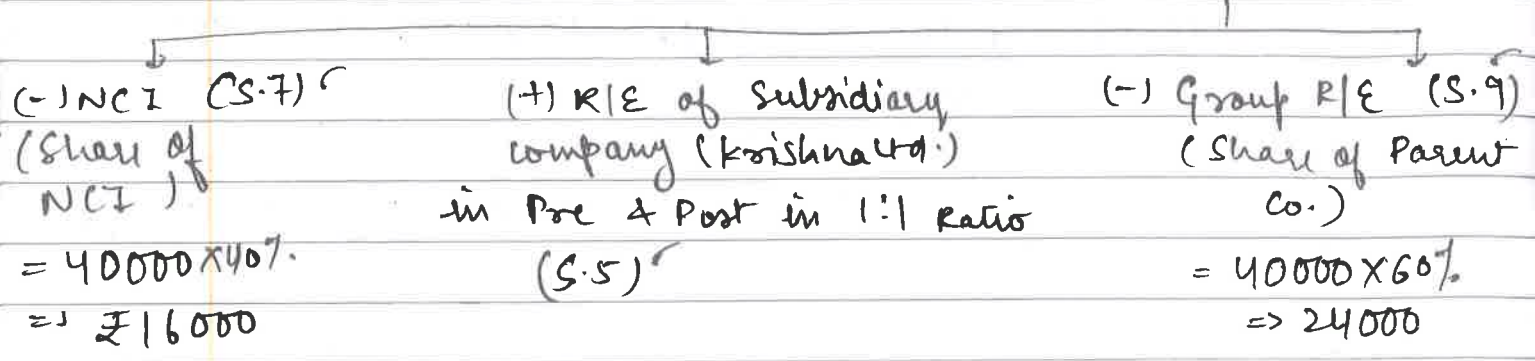 (-) NCI (S.7)
(Share of
NCI)
= 40000 x 40%
=> ₹16000
(+) R/E of Subsidiary
company (Krishna Ltd.)
in Pre & Post in 1:1 Ratio
(S.5)
(-) Group R/E (S.9)
(Share of Parent
Co.)
= 40000 X 60%
=> 24000